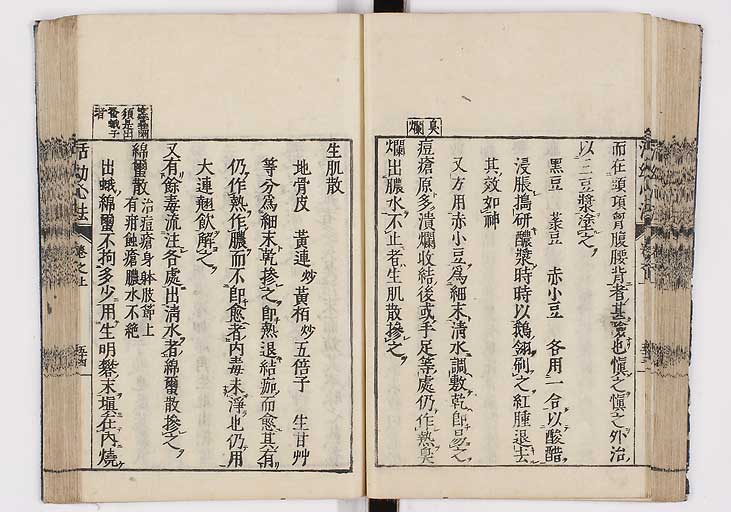 而在頭項胷腹腰背者甚險也愼之愼之外治
以三豆漿塗之
黑豆 菉豆 赤小豆 各用一合以酸醋
浸脹搗研醲漿時時以鵝翎刷之紅腫退去
其效如神
又方用赤小豆爲細末淸水調敷乾卽易之
臭爛
痘瘡原多潰爛收結後或手足等處仍作熱臭
爛出膿水不止者生肌散摻之
生肌散
地骨皮 黃連炒 黃栢炒 五倍子 生甘艸
等分爲細末乾摻之卽熱退結痂而愈其有
仍作熱作膿而不卽愈者內毒未淨也仍用
大連翹飲解之
又有餘毒流注各處出清水者綿蠒散摻之
須是出
蚕蛾子
者
綿蠒散治痘瘡身躰肢節上
有疳蝕瘡膿水不絶
出蛾綿蠒不拘多少用生明礬末塡在內燒
活幼心法 卷之上